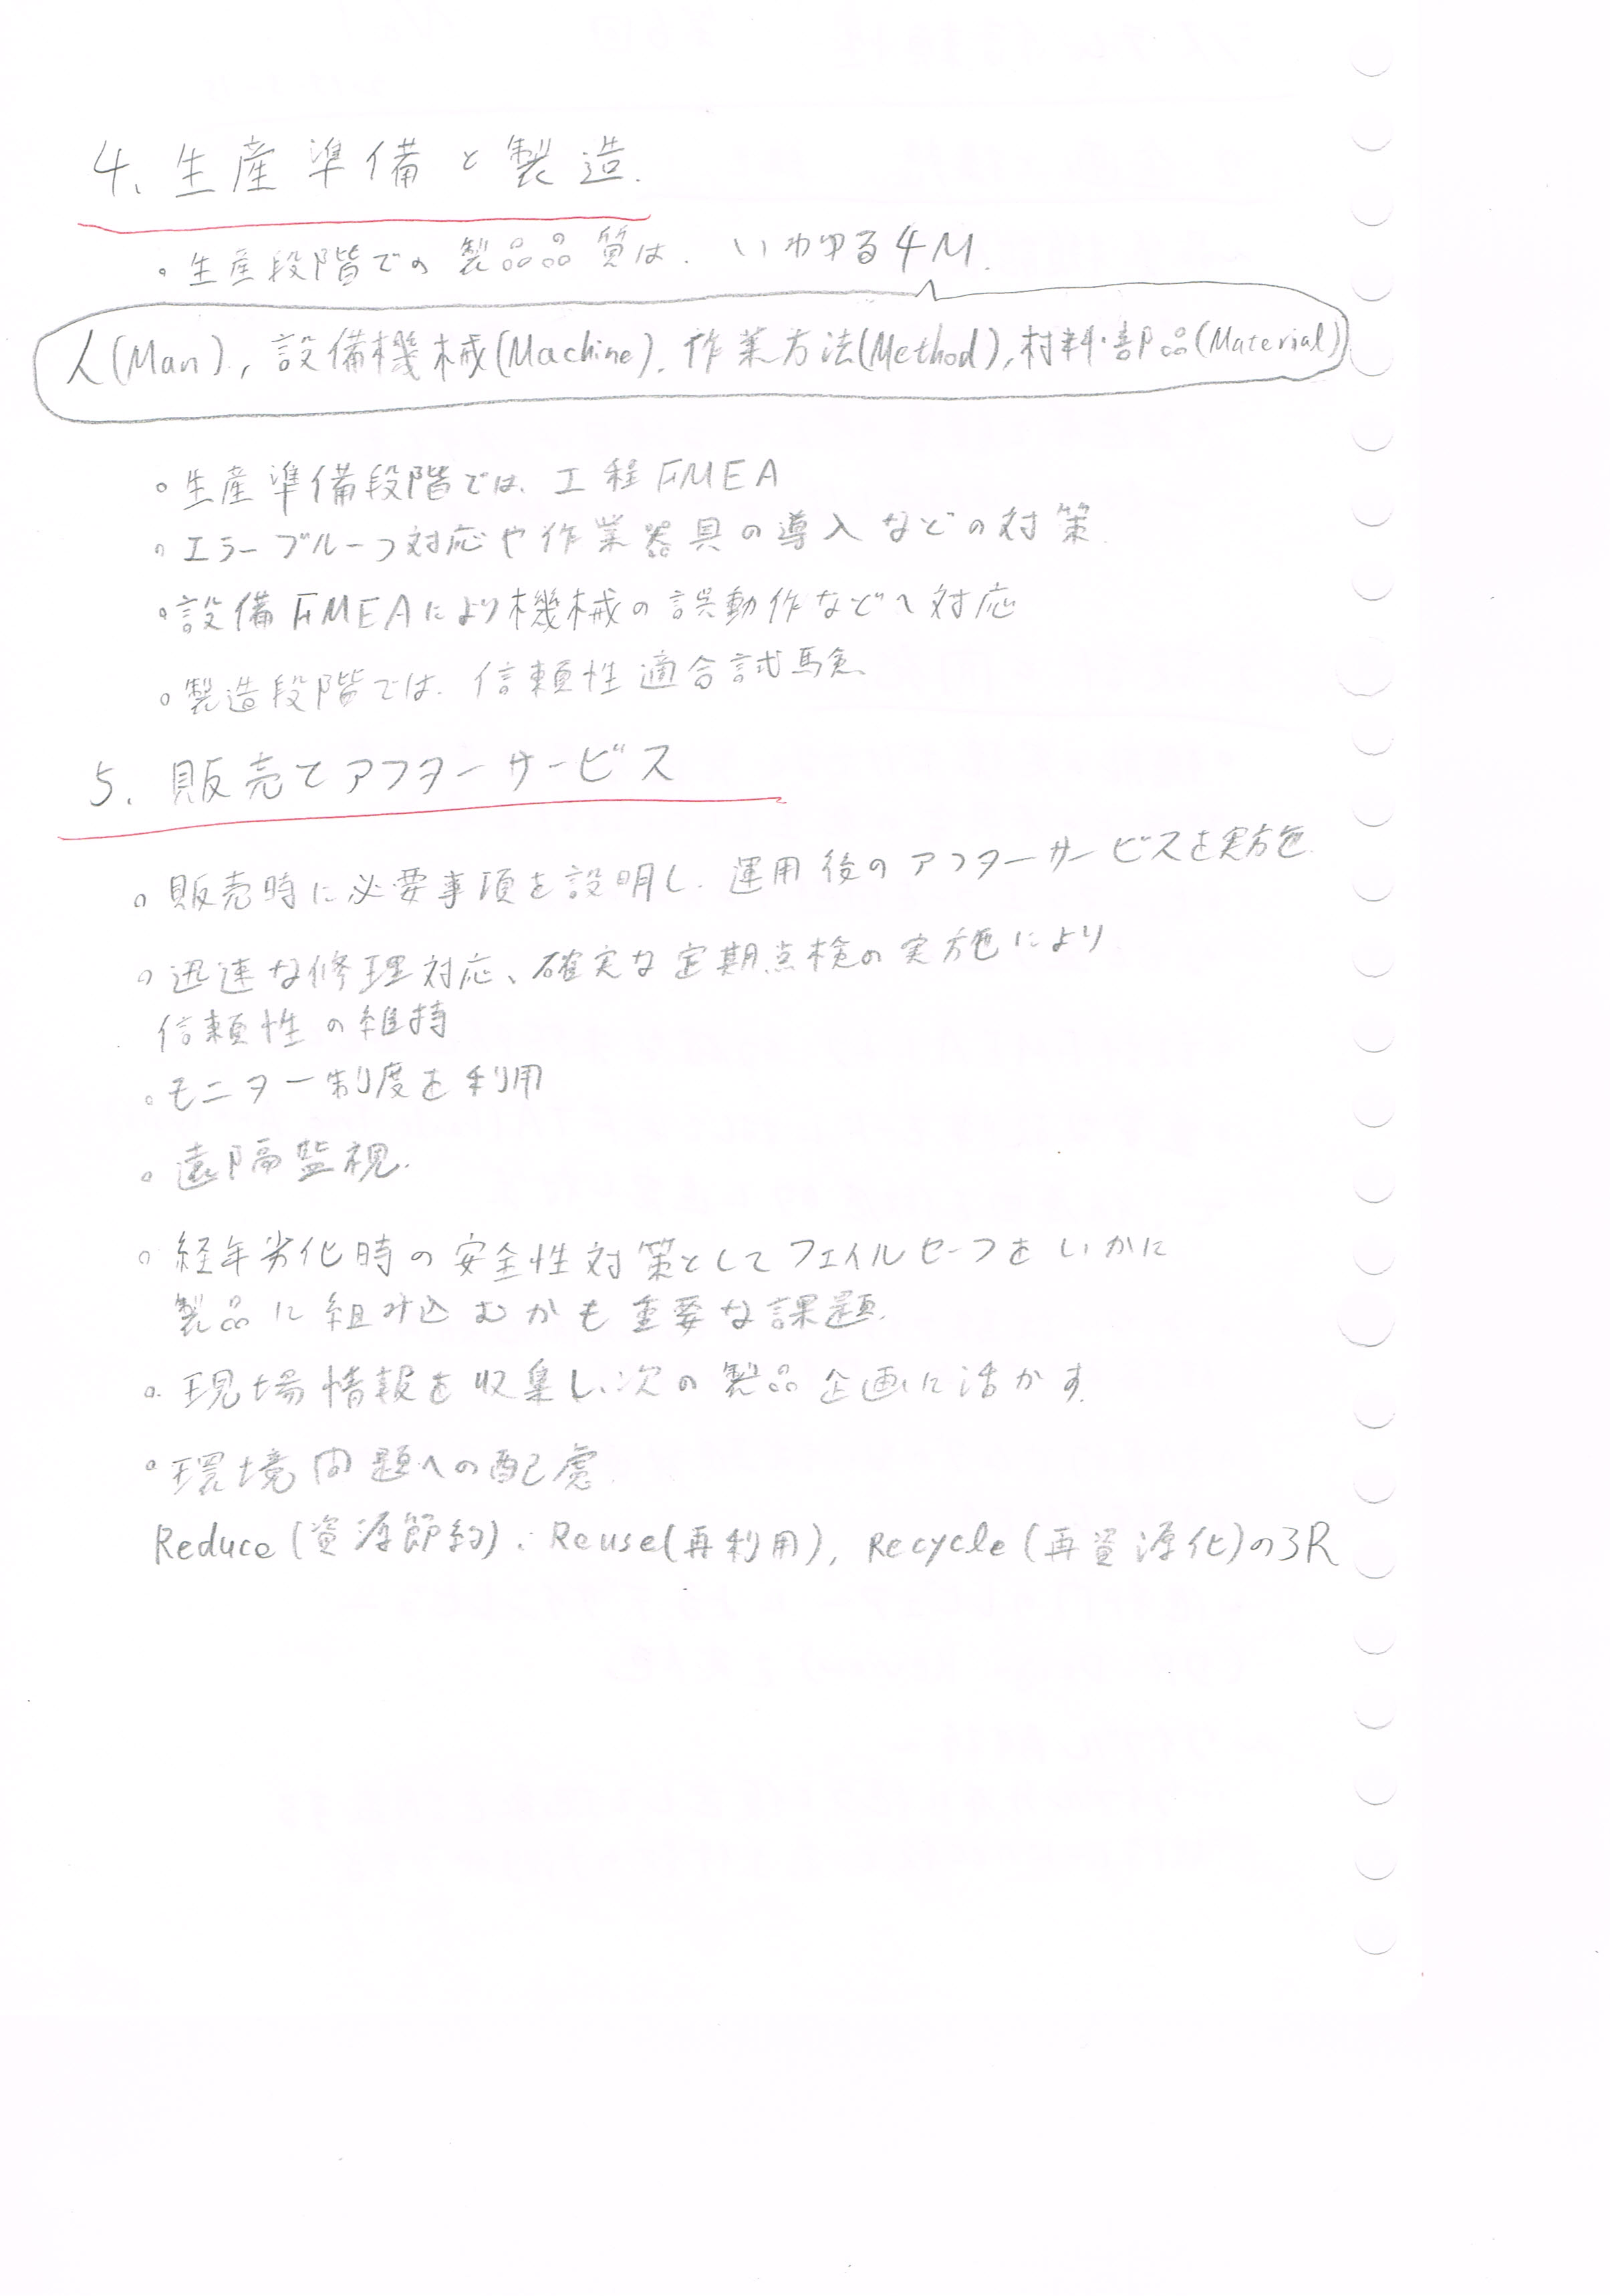 4、生産準備と製造.
。生産段階での製品品質は、いわゆる4M.
人(Man), 設備機械(Machine), 作業方法(Method), 材料・部品(Material)
。生産準備段階では、工程FMEA
。エラープルーフ対応や作業器具の導入などの対策
。設備FMEAにより機械の誤動作などへ対応
。製造段階では、信頼性適合試験
5. 販売とアフターサービス
。販売時に必要事項を説明し、運用後のアフターサービスを実施.
。迅速な修理対応、確実な定期点検の実施により
信頼性の維持
。モニター制度を利用
。遠隔監視.
。経年劣化時の安全性対策としてフェイルセーフをいかに
製品に組み込むかも重要な課題.
。現場情報を収集し、次の製品企画に活かす.
。環境問題への配慮.
Reduce (資源節約), Reuse(再利用), Recycle (再資源化)の3R